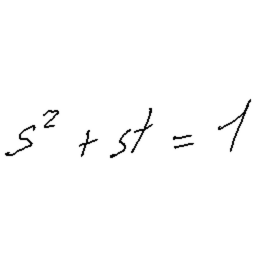 s² + st = 1